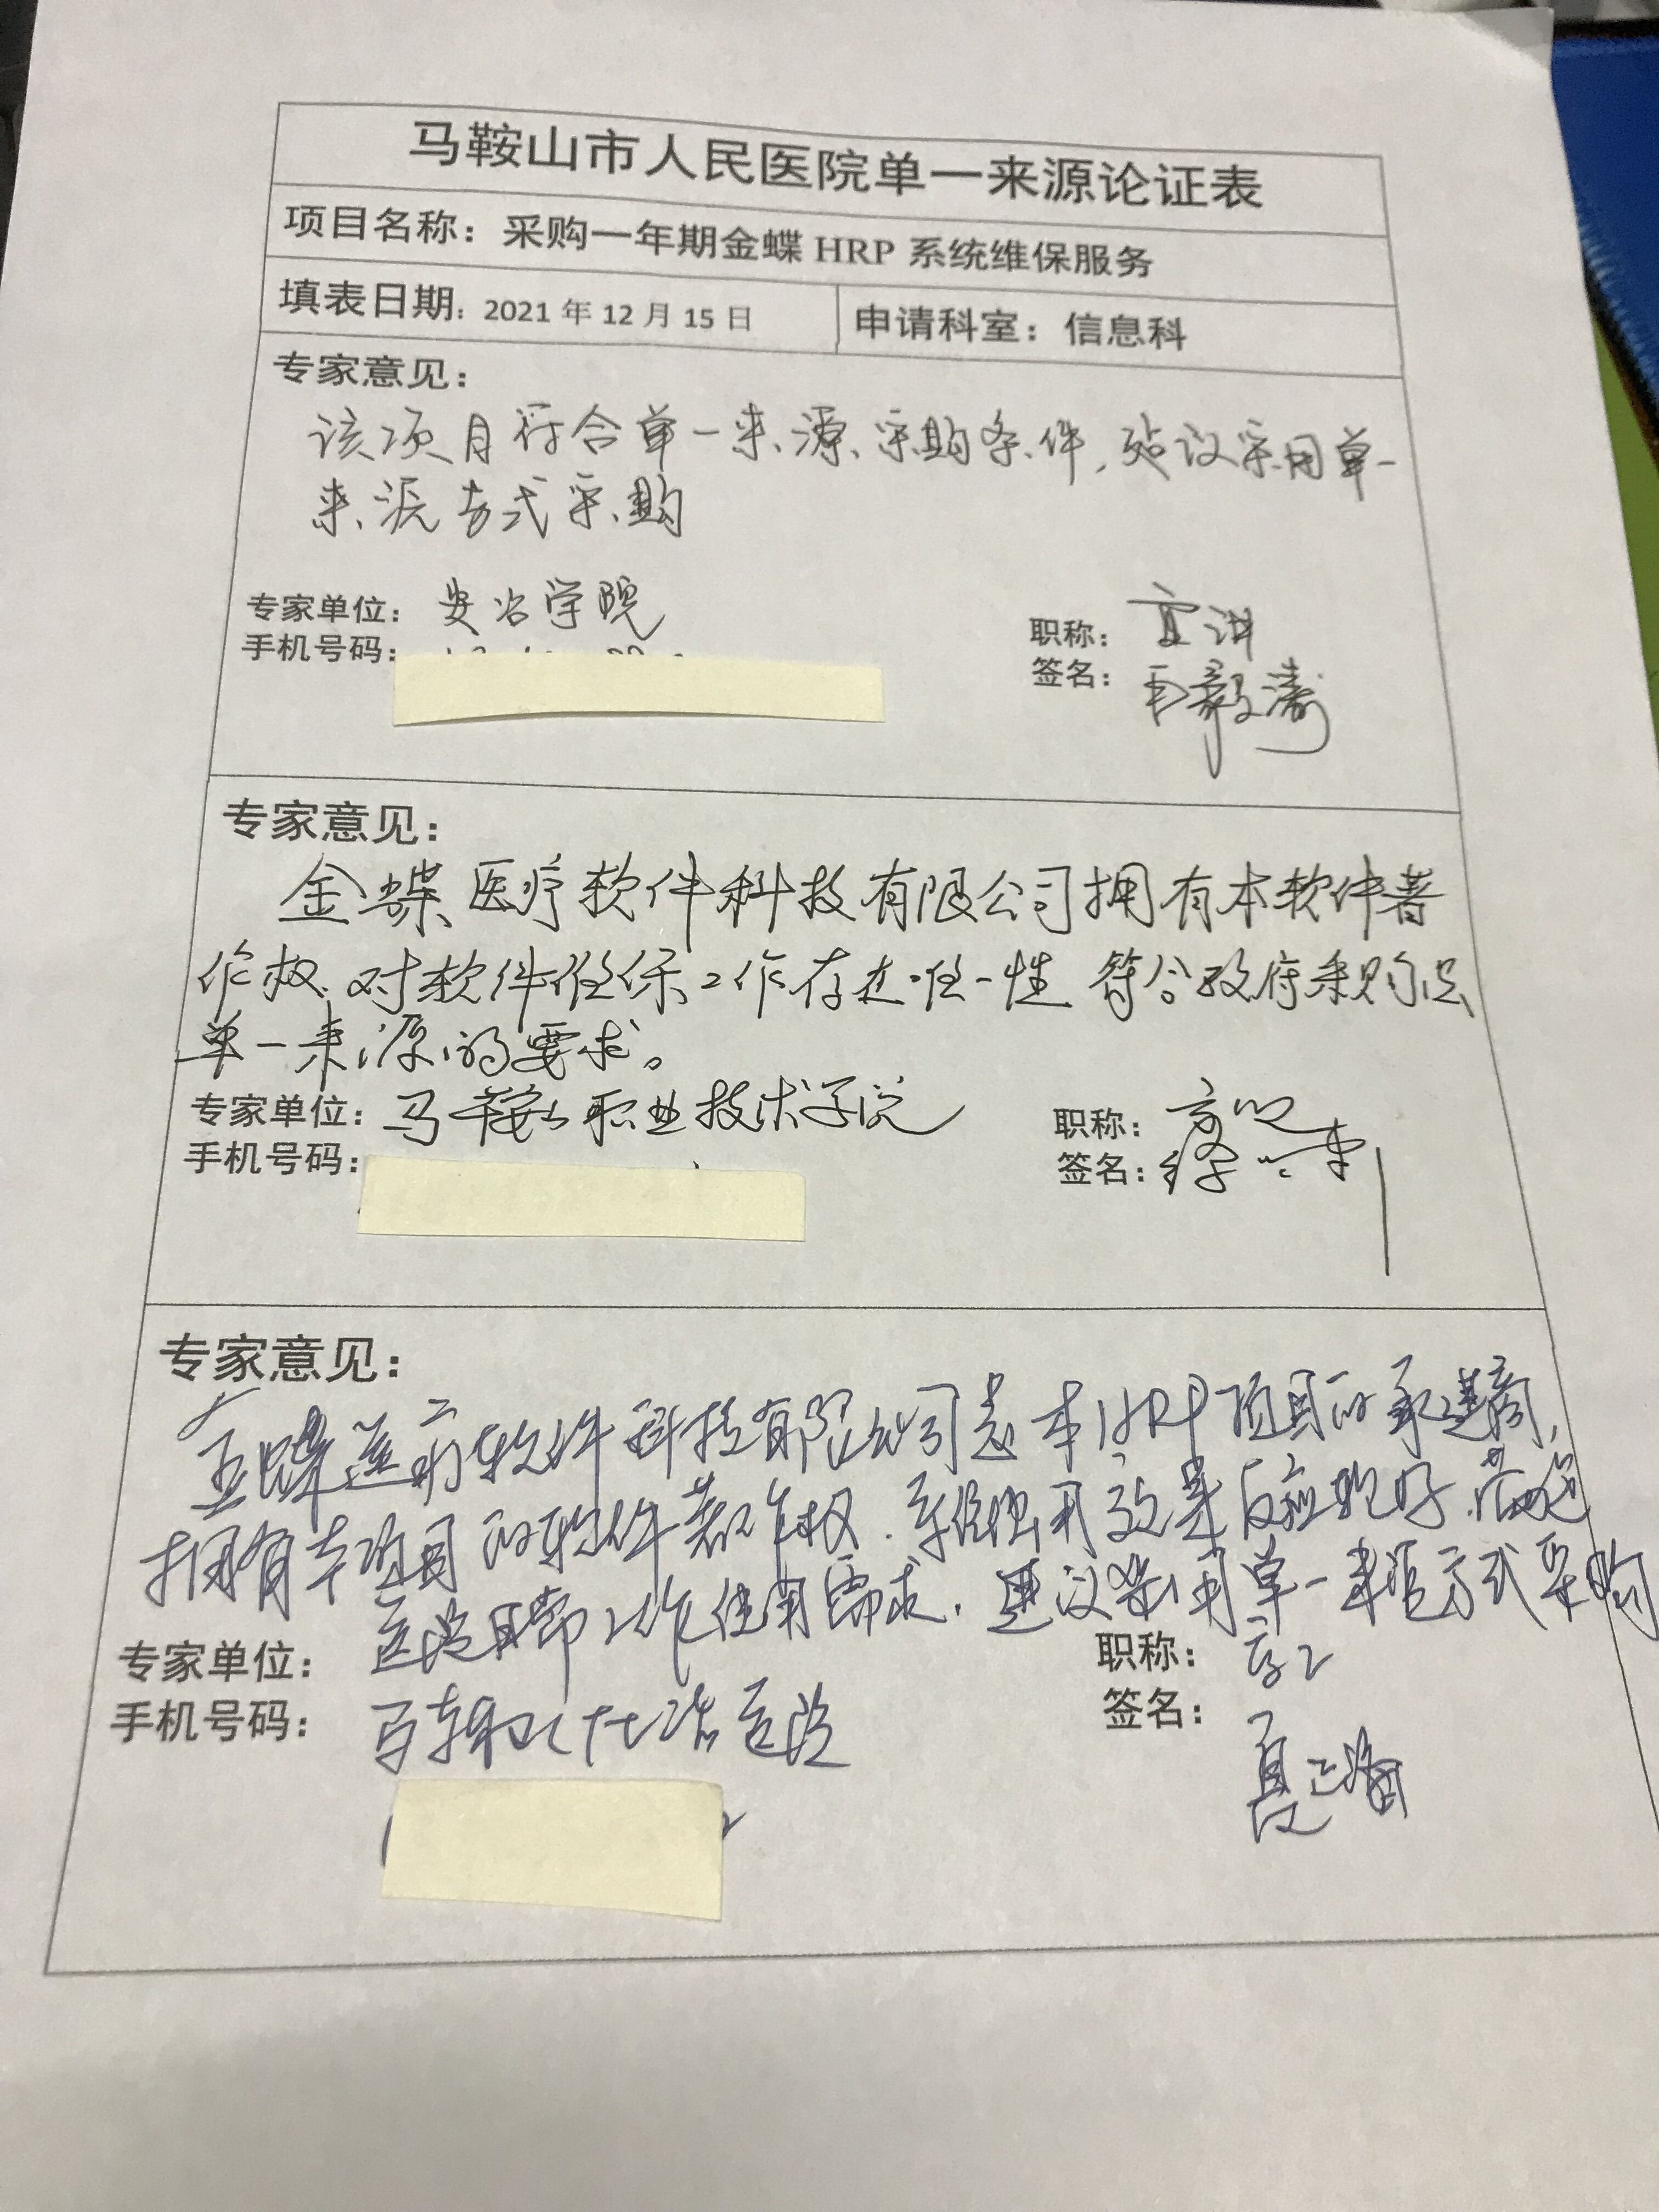 马鞍山市人民医院单一来源论证表
项目名称：采购一年期金蝶 HRP 系统维保服务
填表日期：2021 年 12 月 15 日 申请科室：信息科
专家意见：
该项目符合单一来源采购条件，建议采用单一
来源方式采购
专家单位：安冶学院 职称：高讲
手机号码： 签名：毅涛
专家意见：
金蝶医疗软件科技有限公司拥有本软件著
作权，对软件维保工作存在唯一性 符合政府采购法
单一来源的要求。
专家单位：马鞍山职业技术学院 职称：
手机号码： 签名：徐
专家意见：
金蝶医疗软件科技有限公司是本HRP项目的承建商，
拥有本项目的软件著作权，系统使用效果反应较好，满足
医院日常工作使用需求，建议采用单一来源方式采购
专家单位： 职称：高工
手机号码： 马鞍山十七冶医院 签名：
夏